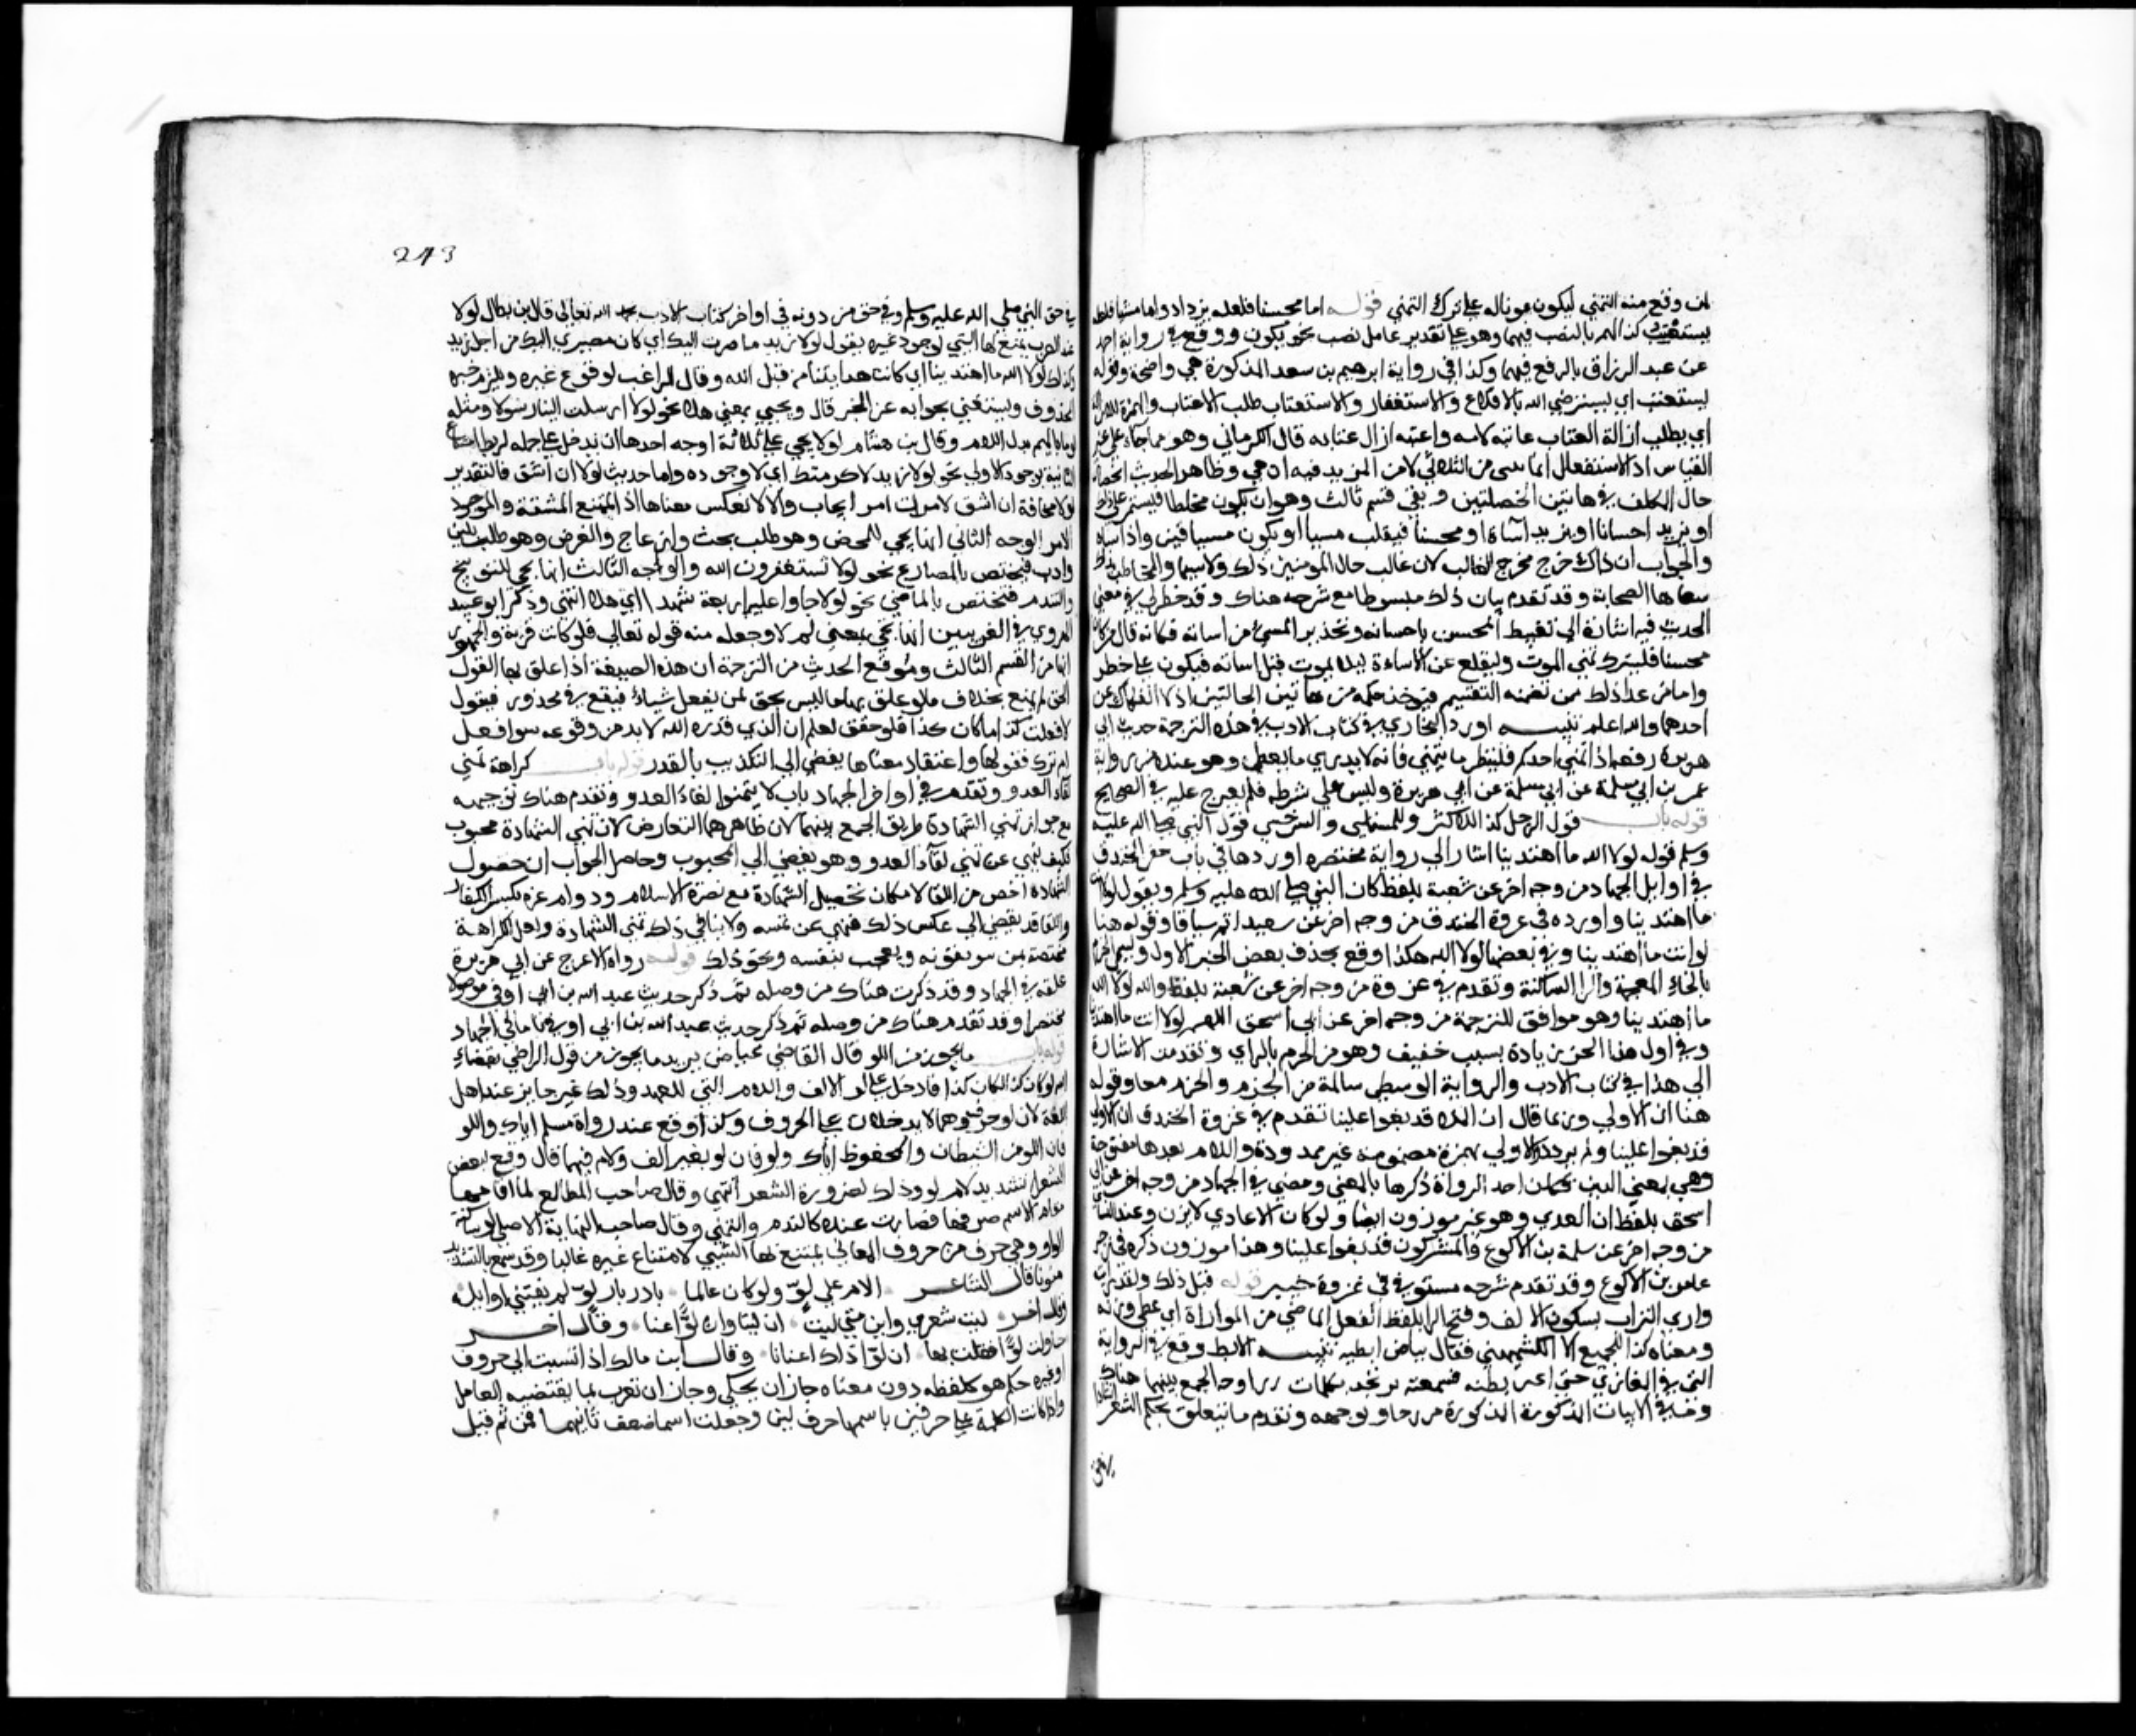 لمن وقع منه التمني ليكون عونا له على ترك التمني قوله اما محسنا فلعله يزداد واما مسيا فلعله
يستعتب كذا لهم بالنصب فيهما وهو على تقدير عامل نصب نحو يكون ووقع في رواية احمد
عن عبد الرزاق بالرفع فيهما وكذا في رواية ابرهيم بن سعد المذكورة هي واضحة وقوله
يستعتب اي يسترضي الله بالاقلاع والاستغفار والاستعتاب طلب الاعتاب والهمزة للازالة
اي يطلب ازالة العتاب عاتبه لامه واعتبه ازال عتابه قال الكرماني وهو مما جاء على غير
القياس اذ الاستفعال انما من الثلاثي لا من المزيد فيه انتهى وظاهر الحديث انحصار
حال المكلف في هاتين الخصلتين وبقي قسم ثالث وهو ان يكون مخلطا فيستمر على ذلك
او يزيد احسانا او يزيد اساة او محسنا فينقلب مسيا او يكون مسيا فيزداد اساة
والجواب ان ذلك خرج مخرج الغالب لان غالب حال المومنين ذلك ولاسيما والمخاطب بذلك
شفاها الصحابة وقد تقدم بيان ذلك مبسوطا مع شرحه هناك وقد خطر لي في معنى
الحديث فيه اشارة الى تغبيط المحسن باحسانه وتحذير المسيء من اساته فكانه قال من كان
محسنا فليترك تمني الموت وليقلع عن الاساءة ليلا يموت قبل اساته فيكون على خطر
واما من عدا ذلك ممن تضمنه التقسيم فيوخذ حكمه من هاتين الحالتين اذ لا انفكاك عن
احدهما والله اعلم تنبيه اورد البخاري في كتاب الادب في هذه الترجمة حديث ابي
هريرة رفعه اذا تمنى احدكم فلينظر ما يتمنى فانه لا يدري ما يعطى وهو عنده من رواية
عمر بن ابي سلمة عن ابي سلمة عن ابي هريرة وليس على شرطه فلم يعرج عليه في الصحيح
قوله باب قول الرجل كذا للاكثر وللمستملي والسرخسي قول النبي صلى الله عليه
وسلم قوله لولا الله ما اهتدينا اشار الى رواية مختصرة اوردها في باب حفر الخندق
في اوايل الجهاد من وجه اخر عن شعبة بلفظ كان النبي صلى الله عليه وسلم ويقول لولا انت
ما اهتدينا واورده في غزوة الخندق من وجه اخر عن شعبة اتم سياقا وقوله هنا
لولا انت ما اهتدينا وفي بعضها لولا الله هكذا وقع بحذف بعض الجزء الاول ويسمى الخرم
بالخاء المعجمة والراء الساكنة وتقدم في غزوة من وجه اخر عن شعبة بلفظ والله لولا الله
ما اهتدينا وهو موافق للترجمة من وجه اخر عن ابي اسحق اللهم لولا انت ما اهتدينا
وفي اول هذا الجزء زيادة بسبب خفيف وهو من الخزم بالزاي وتقدمت الاشارة
الى هذا في كتاب الادب والرواية الوسطى سالمة من الخرم والخزم معا وقوله
هنا ان الاولى وربما قال ان الملا قد بغوا علينا تقدم في غزوة الخندق ان الاولى
قد بغوا علينا ولم يردد والاولى بهمزة مضمومة غير ممدودة واللام بعدها مفتوحة
وهي بمعنى الذين احد الرواة ذكرها بالمعنى ومضى في الجهاد من وجه اخر عن ابي
اسحق بلفظ ان العدى وهو غير موزون ايضا ولو كان الاعادي لاتزن وعند النسائي
من وجه اخر عن سلمة بن الاكوع والمشركون قد بغوا علينا وهذا موزون ذكره في رجز
عامر بن الاكوع وقد تقدم شرحه مستوفى في غزوة خيبر قوله قبل ذلك ولقد رايته
وارى التراب بسكون الالف وفتح الراء بلفظ الفعل الماضي من المواراة اي غطى وزنه
ومعناه كذا للجميع الا الكشميهني فقال بياض ابطيه تنبيه الابط وقع في الرواية
التي في المغازي حتى اغبر بطنه فسمعته يرتجز بكلمات بن رواحة والجمع بينهما هناك
وما في الابيات المذكورة المذكورة من زحاف وتوجيهه وتقدم ما يتعلق بحكم الشعر
في حق النبي صلى الله عليه وسلم وفي حق من دونه في اواخر كتاب الادب بحمد الله تعالى قال بن بطال لولا
عند العرب يمتنع بها الشي لوجود غيره يقول لولا زيد ما صرت اليك اي كان مصيري اليك من اجل زيد
وكذلك لولا الله ما اهتدينا اي كانت هدايتنا من قبل الله وقال الراغب لوقوع غيره ويلزم خبره
الحذف ويستغنى بجوابه عن الخبر قال ويجيى بمعنى هلا نحو لولا ارسلت الينا رسولا ومثله
لوما بالميم بدل اللام وقال بن هشام لولا يجي على ثلاثة اوجه احدها ان يدخل على جملة لربط امتناع
الثانية بوجود الاولى نحو لولا زيد لاكرمتك اي لولا وجوده واما حديث لولا ان اشق فالتقدير
لولا مخافة ان اشق لامرت امر ايجاب والا لانعكس معناها اذ الممتنع المشقة والموجود
الامر الوجه الثاني انها يجي للحض وهو طلب بحث وازعاج والعرض وهو طلب بلين
وادب فيختص بالمضارع نحو لولا تستغفرون الله والوجه الثالث انها يجي للتوبيخ
والتندم فتختص بالماضي نحو لولا جاوا عليه باربعة شهدا اي هلا انتهى وذكر ابو عبيد
الهروي في الغريبين انها تجي بمعنى لم لا وجعله منه قوله تعالى فلولا كانت قرية والجمهور
انها من القسم الثالث وموقع الحديث من الترجمة ان هذه الصيغة اذا علق بها القول
الحق لم يمنع بخلاف ما لو علق بها ما ليس بحق كمن يفعل شياء فيقع في محذور فيقول
لولا فعلت كذا ما كان كذا فلو حقق لعلم ان الذي قدره الله لا بد من وقوعه سوا فعل
ام ترك فقولها واعتقاد معناها يفضي الى التكذيب بالقدر قوله باب كراهة تمني
لقاء العدو وتقدم في اواخر الجهاد باب لا يتمنوا لقاء العدو وتقدم هناك توجيهه
مع جواز تمني الشهادة وطريق الجمع بينهما لان ظاهرهما التعارض لان تمني الشهادة محبوب
فكيف ينهى عن تمني لقاء العدو وهو يفضي الى المحبوب وحاصل الجواب ان حصول
الشهادة اخص من اللقا لامكان تحصيل الشهادة مع نصرة الاسلام ودوام عزه بكسر الكفار
واللقا قد يفضي الى عكس ذلك فنهى عن تمنيه ولا ينافي ذلك تمني الشهادة ولعل الكراهة
مختصة بمن يثق بقوته ويعجب بنفسه ونحو ذلك قوله رواه الاعرج عن ابي هريرة
علقه في الجهاد وقد ذكرت هناك من وصله ثم ذكر حديث عبد الله بن ابي اوفى موصولا
مختصرا وقد تقدم هناك من وصله ثم ذكر حديث عبد الله بن ابي اوفى في الجهاد
قوله باب ما يجوز من اللو قال القاضي عياض يريد ما يجوز من قول الراضي بقضاء
الله لو كان كذا لكان كذا فادخل على لو الالف واللام التي للعهد وذلك غير جايز عند اهل
اللغة لان لو حرف وهما لا يدخلان على الحروف وكذا وقع عند رواة مسلم اياك واللو
فان اللو من الشيطان والمحفوظ اياك ولو فان لو بغير الف ولام فيهما قال ووقع لبعض
الشعراء تشديد لام لو وذلك لضرورة الشعر انتهى وقال صاحب المطالع لما اقامها
مقام الاسم صرفها فصارت عنده كالندم والتمني وقال صاحب النهاية الاصل لو ساكنة
الواو وهي حرف من حروف المعاني يمتنع بها الشي لامتناع غيره غالبا وقد سمع بالتشديد
منونا قال الشاعر الام على لوّ ولو كان عالما باذناب لوّ لم يفتني اوايله
وقال اخر ليت شعري واين مني ليت ان ليتا وان لوّا عنا وقال اخر
حاولت لوّا فقلت لها ان لوّا ذاك اعنانا وقال ابن مالك اذا نسبت الى حروف
اوغيره حكم هو للفظه دون معناه جاز ان يحكى وجاز ان تعرب بما يقتضيه العامل
واذا كانت الكلمة على حرفين ثانيهما حرف لين وجعلت اسما ضعف ثانيهما فمن ثم قيل